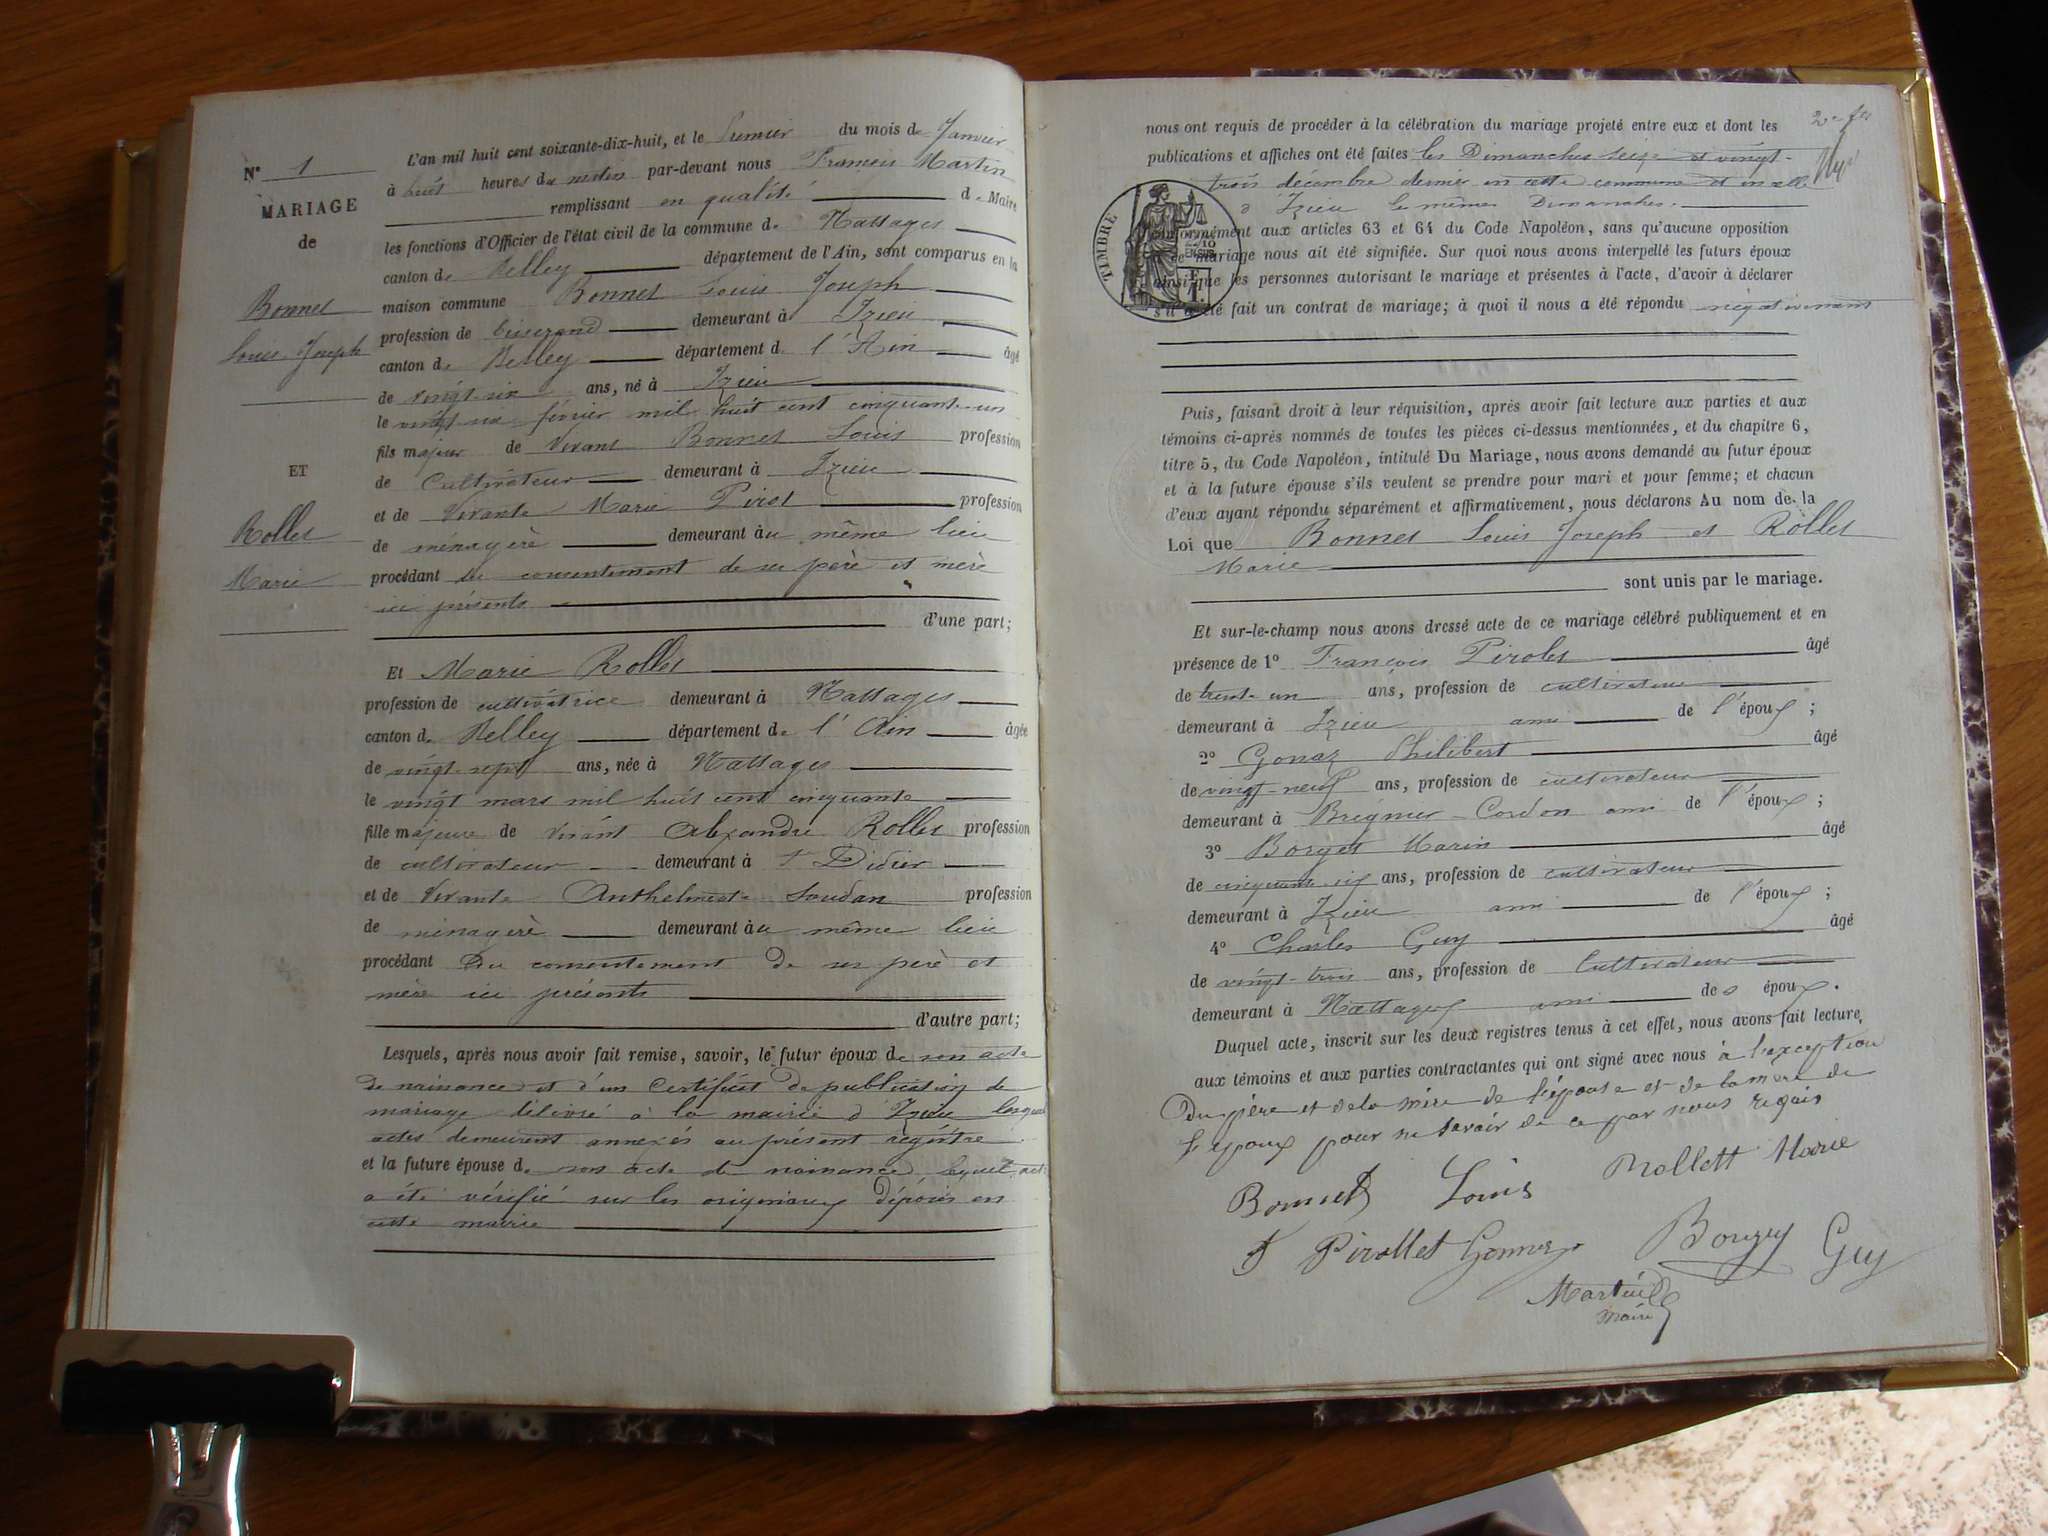 N° 1
MARIAGE
de
Bonnet
Louis Joseph
ET
Rollet
Marie
L'an mil huit cent soixante-dix-huit, et le Premier du mois de Janvier
à huit heures du matin par-devant nous François Martin
remplissant en qualité de Maire
les fonctions d'Officier de l'état civil de la commune de Nattages
canton de Belley département de l'Ain, sont comparus en la
maison commune Bonnet Louis Joseph
profession de tisserand demeurant à Izieu
canton de Belley département de l'Ain âgé
de vingt-six ans, né à Izieu
le vingt six février mil huit cent cinquante-un
fils majeur de Vivant Bonnet Louis profession
de Cultivateur demeurant à Izieu
et de Vivante Marie Pirot profession
de ménagère demeurant au même lieu
procédant du consentement de ses père et mère
ici présents
d'une part;
Et Marie Rollet
profession de cultivatrice demeurant à Nattages
canton de Belley département de l'Ain âgée
de vingt-sept ans, née à Nattages
le vingt mars mil huit cent cinquante
fille majeure de Vivant Alexandre Rollet profession
de cultivateur demeurant à St Didier
et de Vivante Anthelmette Soudan profession
de ménagère demeurant au même lieu
procédant Du consentement de ses père et
mère ici présents
d'autre part;
Lesquels, après nous avoir fait remise, savoir, le futur époux de son acte
de naissance et d'un Certificat de publication de
mariage délivré à la mairie d'Izieu lesquels
actes demeurent annexés au présent registre
et la future épouse de son acte de naissance lequel acte
a été vérifié sur les originaux déposés en
cette mairie
nous ont requis de procéder à la célébration du mariage projeté entre eux et dont les
publications et affiches ont été faites les Dimanches seize et vingt-
trois décembre dernier en cette commune et en celle
d'Izieu les mêmes Dimanches.
TIMBRE
conformément aux articles 63 et 64 du Code Napoléon, sans qu'aucune opposition
ce mariage nous ait été signifiée. Sur quoi nous avons interpellé les futurs époux
ainsi que les personnes autorisant le mariage et présentes à l'acte, d'avoir à déclarer
s'il a été fait un contrat de mariage; à quoi il nous a été répondu négativement
Puis, faisant droit à leur réquisition, après avoir fait lecture aux parties et aux
témoins ci-après nommés de toutes les pièces ci-dessus mentionnées, et du chapitre 6,
titre 5, du Code Napoléon, intitulé Du Mariage, nous avons demandé au futur époux
et à la future épouse s'ils veulent se prendre pour mari et pour femme; et chacun
d'eux ayant répondu séparément et affirmativement, nous déclarons Au nom de la
Loi que Bonnet Louis Joseph et Rollet
Marie
sont unis par le mariage.
Et sur-le-champ nous avons dressé acte de ce mariage célébré publiquement et en
présence de 1° François Pirolet âgé
de trente un ans, profession de cultivateur
demeurant à Izieu ami de l'époux;
2° Gonaz Philibert âgé
de vingt-neuf ans, profession de cultivateur
demeurant à Brégnier-Cordon ami de l'époux;
3° Borget Marin âgé
de cinquante-six ans, profession de cultivateur
demeurant à Izieu ami de l'époux;
4° Charles Guy âgé
de vingt-trois ans, profession de Cultivateur
demeurant à Nattages ami des époux.
Duquel acte, inscrit sur les deux registres tenus à cet effet, nous avons fait lecture
aux témoins et aux parties contractantes qui ont signé avec nous à l'exception
Du père et de la mère de l'épouse et de la mère de
l'époux pour ne savoir de ce par nous requis
Bonnet Louis Rollett Marie
F Pirollet Gonnaz Bourgey Guy
Martin
maire